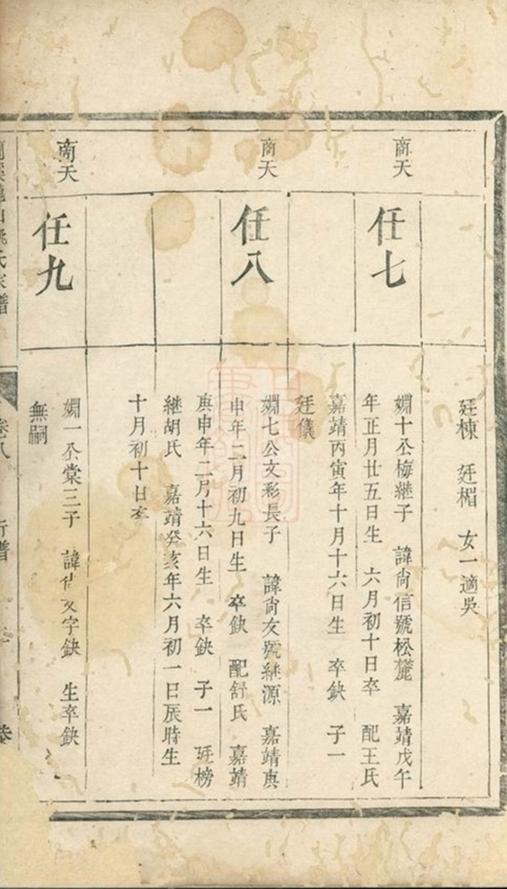 廷棟 廷楣 女一適吳
商天
任七
嫺十公梅継子 諱尙信號松麓 嘉靖戊午
年正月廿五日生 六月初十日卒 配王氏
嘉靖丙寅年十月十六日生 卒缺 子一
廷儀
商天
任八
嫺七公文彩長子 諱尙友號継源 嘉靖庚
申年二月初九日生 卒缺 配舒氏 嘉靖
庚申年二月十六日生 卒缺 子一 廷榜
継胡氏 嘉靖癸亥年六月初一日辰時生
十月初十日卒
商天
任九
嫺一公棠三子 諱尙文字缺 生卒缺
無嗣
氏宗譜 卷八 行譜